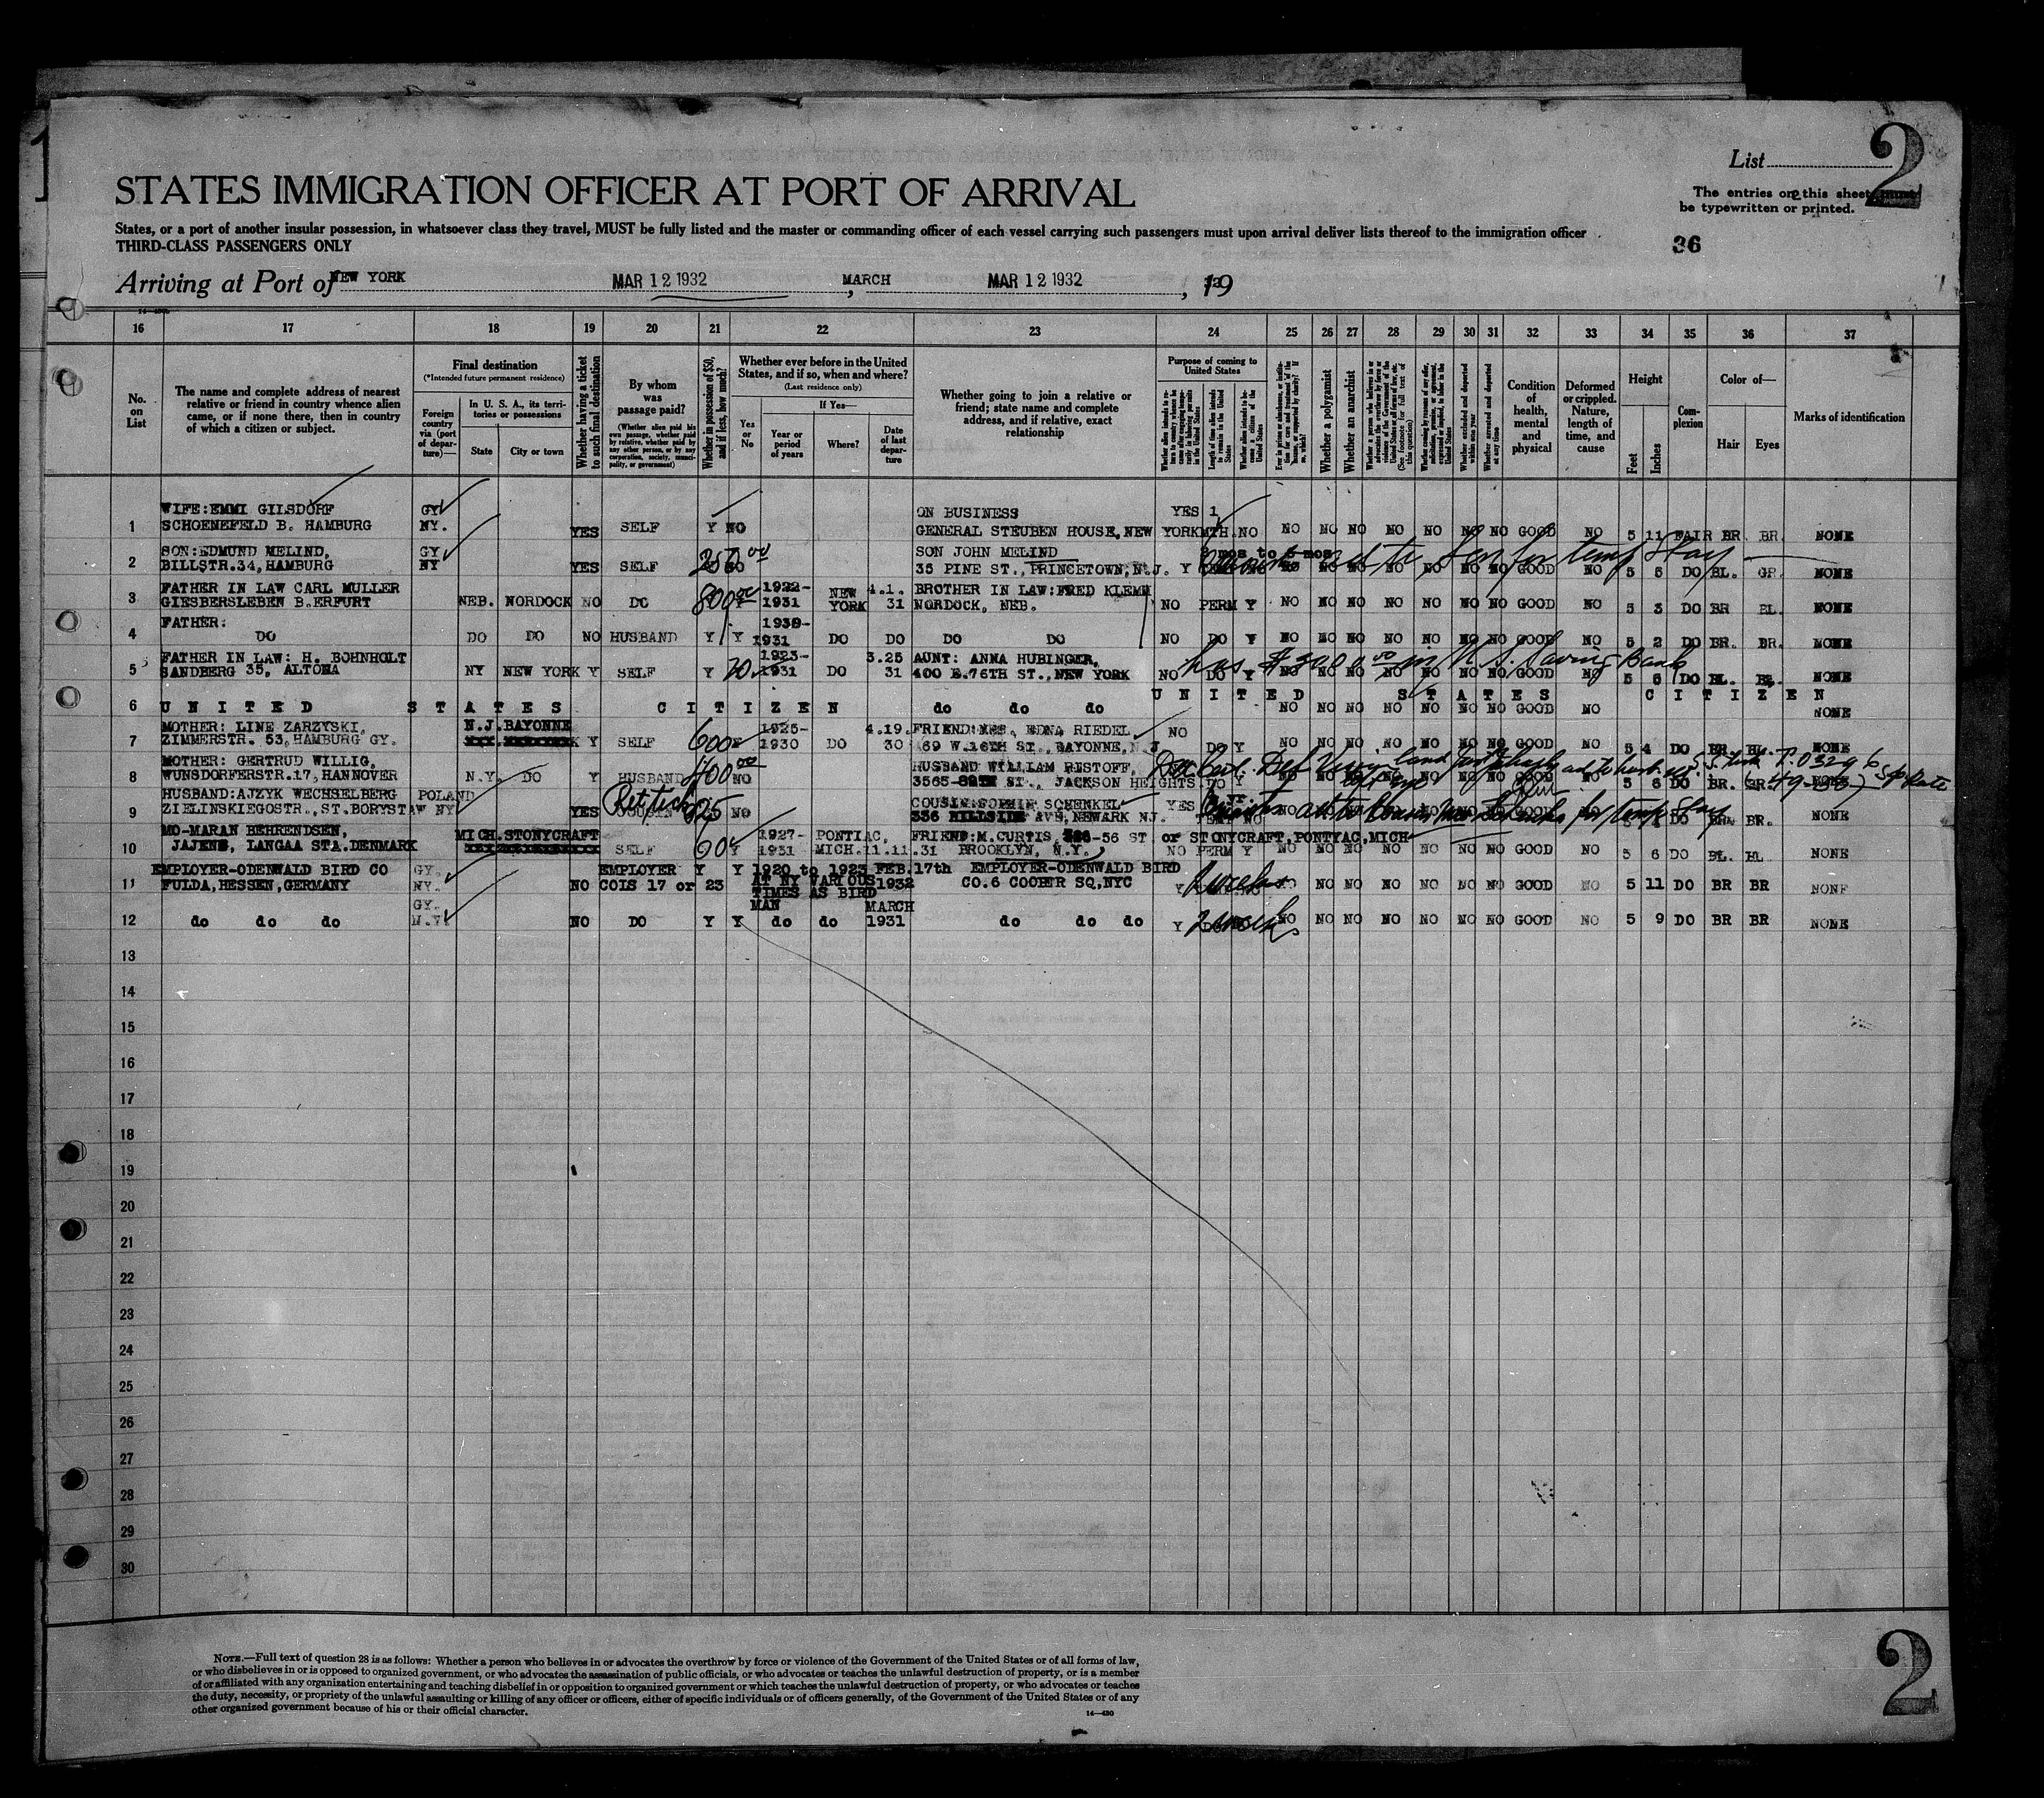 List 2
The entries on this sheet must
be typewritten or printed.
36
STATES IMMIGRATION OFFICER AT PORT OF ARRIVAL
States, or a port of another insular possession, in whatsoever class they travel, MUST be fully listed and the master or commanding officer of each vessel carrying such passengers must upon arrival deliver lists thereof to the immigration officer
THIRD-CLASS PASSENGERS ONLY
Arriving at Port of NEW YORK MAR 12 1932 , MARCH MAR 12 1932 , 19
16 17 18 19 20 21 22 23 24 25 26 27 28 29 30 31 32 33 34 35 36 37
No. on List
The name and complete address of nearest relative or friend in country whence alien came, or if none there, then in country of which a citizen or subject.
Final destination
(*Intended future permanent residence)
Foreign country via (port of departure)—
In U. S. A., its territories or possessions
State
City or town
Whether having a ticket to such final destination
By whom was passage paid?
(Whether alien paid his own passage, whether paid by relative, whether paid by any other person, or by any corporation, society, municipality, or government)
Whether in possession of $50, and if less, how much?
Whether ever before in the United States, and if so, when and where?
(Last residence only)
If Yes—
Yes or No
Year or period of years
Where?
Date of last departure
Whether going to join a relative or friend; state name and complete address, and if relative, exact relationship
Purpose of coming to United States
Length of time alien intends to remain in the United States
Whether alien intends to become a citizen of the United States
Whether a polygamist
Whether an anarchist
Whether excluded and deported within one year
Whether arrested and deported at any time
Condition of health, mental and physical
Deformed or crippled. Nature, length of time, and cause
Height
Feet
Inches
Complexion
Color of—
Hair
Eyes
Marks of identification
WIFE:EMMI GILSDORF GY ON BUSINESS YES 1
1 SCHOENEFELD B. HAMBURG NY. YES SELF Y NO GENERAL STEUBEN HOUSE,NEW YORK MTH. NO NO NO NO NO NO NO NO GOOD NO 5 11 FAIR BR BR. NONE
SON:EDMUND MELIND, GY SON JOHN MELIND 3 mos to 6 mos
2 BILLSTR.34,HAMBURG NY YES SELF 250 00 NO 35 PINE ST.,PRINCETON,N.J. Y for temp stay NO NO NO NO NO NO NO GOOD NO 5 5 DO BL. GR. NONE
FATHER IN LAW CARL MULLER 1922- NEW 4.1. BROTHER IN LAW:FRED KLEMM
3 GIESBERSLEBEN B.ERFURT NEB. NORDOCK NO DO 800 00 1931 YORK 31 NORDOCK, NEB. NO PERM Y NO NO NO NO NO NO NO GOOD NO 5 3 DO BR BL. NONE
FATHER:
4 DO DO DO NO HUSBAND Y Y 1931 DO DO DO DO NO DO Y NO NO NO NO NO NO NO GOOD NO 5 2 DO BR. BR. NONE
FATHER IN LAW: H. BOHNHOLT 1923- 3.25 AUNT: ANNA HUBINGER, has $3000 00 in N.Y. Saving Bank
5 SANDBERG 35, ALTONA NY NEW YORK Y SELF Y 70 1931 DO 31 400 E.76TH ST.,NEW YORK NO DO Y NO NO NO NO NO NO NO GOOD NO 5 5 DO BL. NONE
UNITED STATES CITIZEN
6 UNITED STATES CITIZEN do do do NO NO NO NO NO NO NO GOOD NO NONE
MOTHER: LINE ZARZYSKI, N.J.BAYONNE 1925- 4.19. FRIEND:MRS. EDNA RIEDEL NO
7 ZIMMERSTR. 53,HAMBURG GY. Y SELF 600 1930 DO 30 69 W.16TH ST., BAYONNE,N.J DO Y NO NO NO NO NO NO NO GOOD NO 5 4 DO BR. BL. NONE
MOTHER: GERTRUD WILLIG, HUSBAND WILLIAM RISTOFF, T.03296
8 WUNSDORFERSTR.17,HANNOVER N.Y. DO Y HUSBAND 400 00 NO 3565-89TH ST., JACKSON HEIGHTS DO Y GOOD NO 5 6 DO BR. GR. NONE
HUSBAND:AJZYK WECHSELBERG POLAND COUSIN:SOPHIE SCHENKEL YES
9 ZIELINSKIEGOSTR.,ST.BORYSTAW NY YES COUSIN 25 NO 336 HILLSIDE AVE,NEWARK NJ. for temp stay GOOD DO BR. NONE
MO-MARAN BEHRENDSEN, MICH.STONYCRAFT 1927- PONTIAC, FRIEND:M.CURTIS, -56 ST or STONYCRAFT,PONTYAC,MICH
10 JAJENS, LANGAA STA.DENMARK SELF 60 Y 1931 MICH.11.11.31 BROOKLYN, N.Y. NO PERM Y NO NO NO NO NO NO NO GOOD NO 5 6 DO BL. BL NONE
EMPLOYER-ODENWALD BIRD CO GY. EMPLOYER Y Y 1920 to 1923 FEB.17th EMPLOYER-ODENWALD BIRD
11 FULDA,HESSEN,GERMANY NY. NO COIS 17 or 23 AT NY VARIOUS 1932 CO.6 COOPER SQ,NYC Y 2 weeks NO NO NO NO NO NO NO GOOD NO 5 11 DO BR BR NONE
TIMES AS BIRD
GY. MAN MARCH
12 do do do N.Y. NO DO Y Y do do 1931 do do do Y 2 weeks NO NO NO NO NO NO NO GOOD NO 5 9 DO BR BR NONE
13
14
15
16
17
18
19
20
21
22
23
24
25
26
27
28
29
30
NOTE.—Full text of question 28 is as follows: Whether a person who believes in or advocates the overthrow by force or violence of the Government of the United States or of all forms of law,
or who disbelieves in or is opposed to organized government, or who advocates the assassination of public officials, or who advocates or teaches the unlawful destruction of property, or is a member
of or affiliated with any organization entertaining and teaching disbelief in or opposition to organized government or which teaches the unlawful destruction of property, or who advocates or teaches
the duty, necessity, or propriety of the unlawful assaulting or killing of any officer or officers, either of specific individuals or of officers generally, of the Government of the United States or of any
other organized government because of his or their official character.
14—430
2